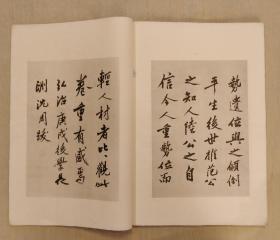 勢遺位與之傾倒
平生後世推范公
之知人陸公之自
信令人重勢位而
輕人材者比比觀此
卷重有感焉
弘治庚戌後學長
洲沈周跋